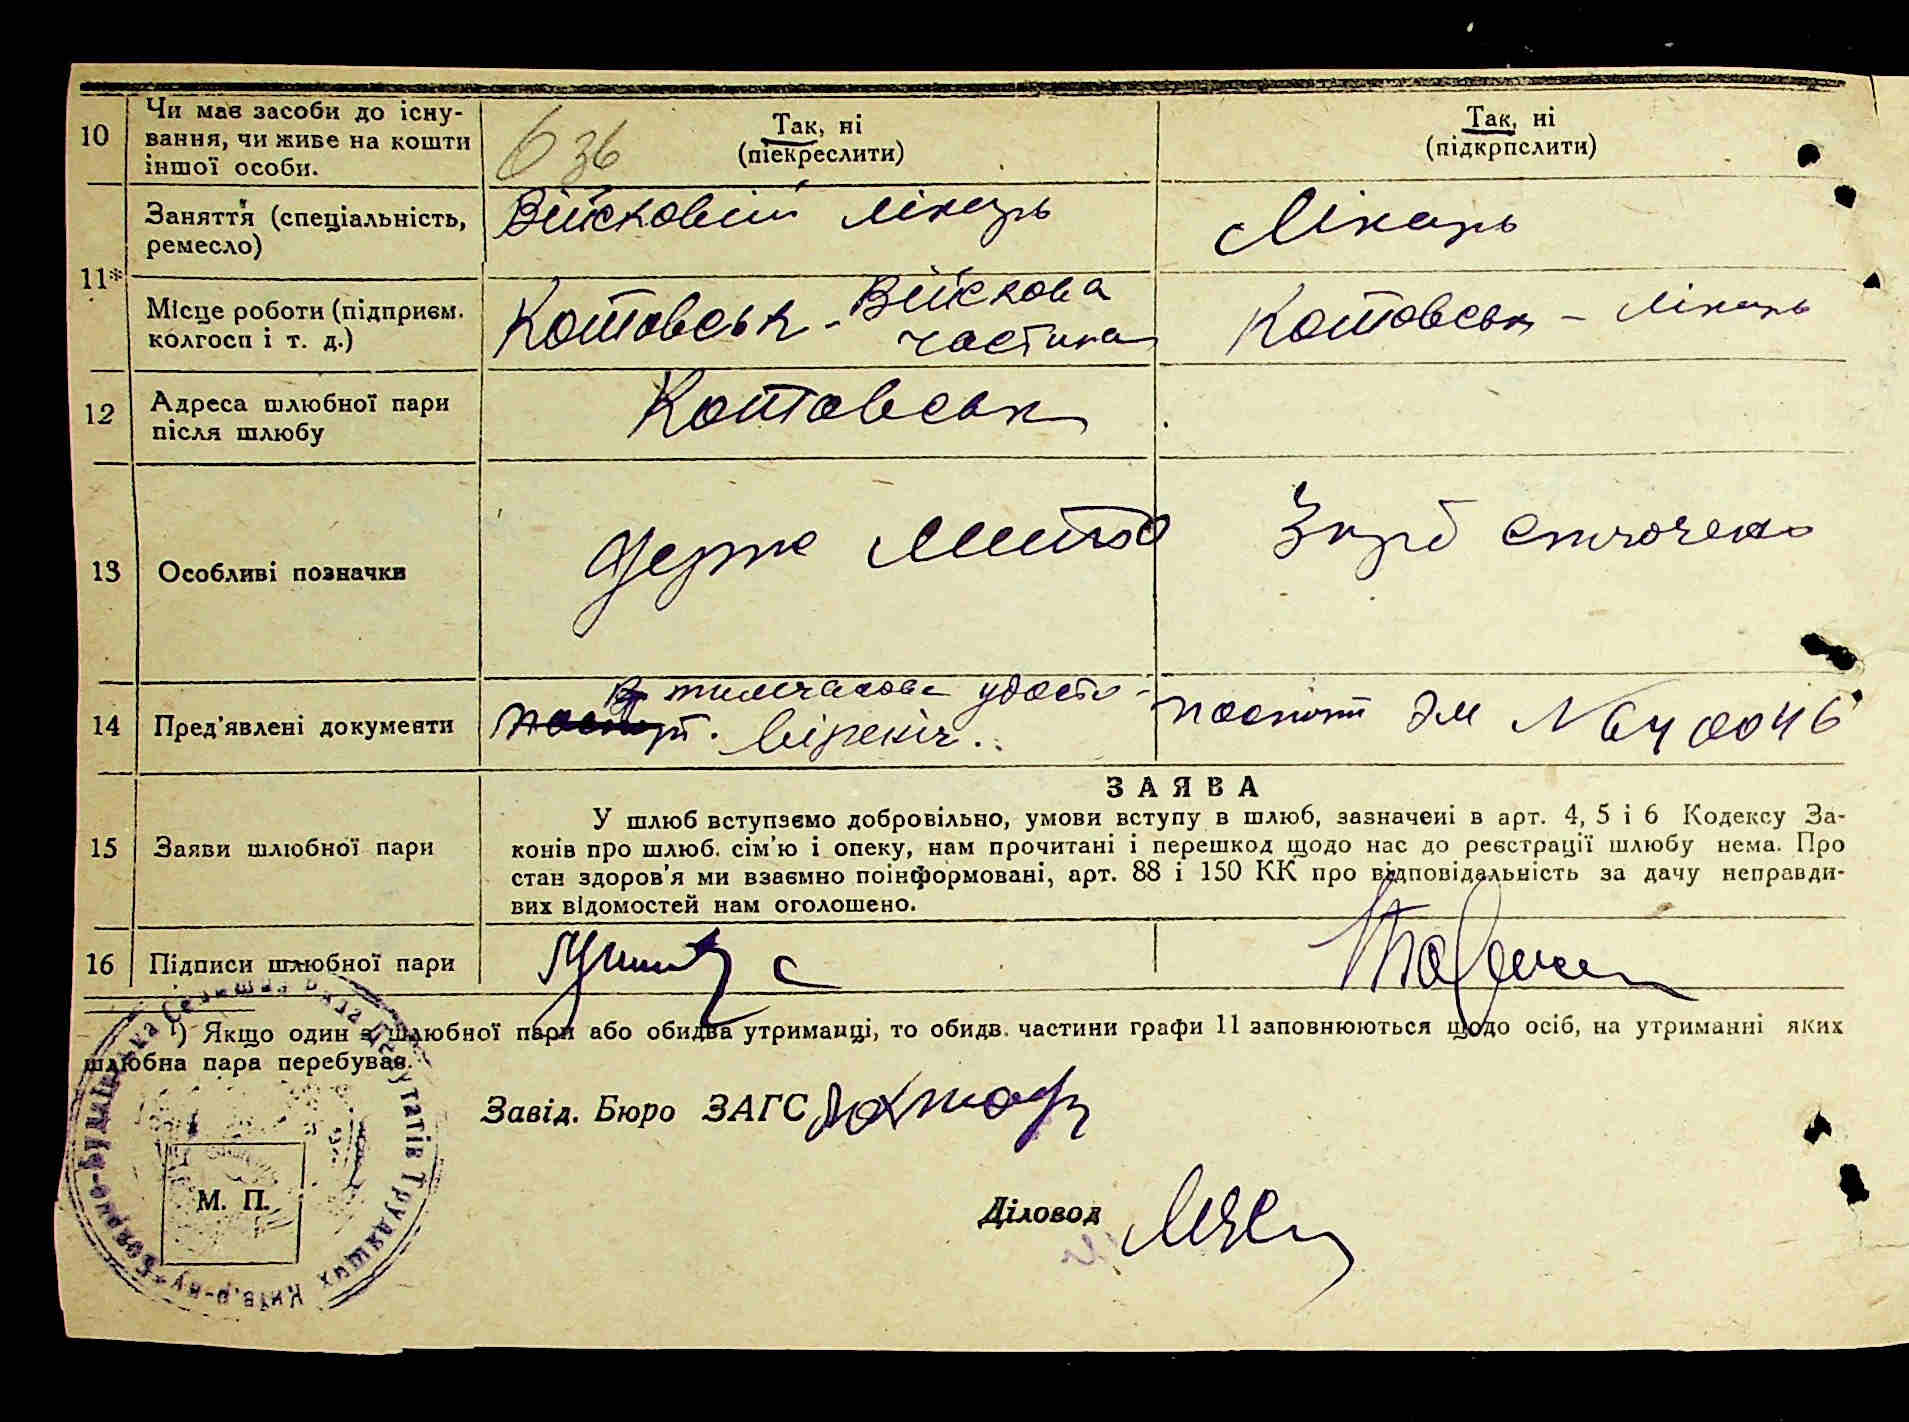 10
Чи має засоби до існу-
вання, чи живе на кошти
іншої особи.
636
Так, ні
(піекреслити)
Так, ні
(підкрпслити)
11*
Заняття (спеціальність,
ремесло)
Війсковій лікарь
Лікарь
Місце роботи (підприєм.
колгосп і т. д.)
Котовськ - Війскова
частина
Котовськ - лікарь
12
Адреса шлюбної пари
після шлюбу
Котовськ
13
Особливі позначки
Держ Мито
Збор сплочено
14
Пред'явлені документи
тимчасове удосто-
паспорт.
паспорт ЭМ № 640046
15
Заяви шлюбної пари
ЗАЯВА
У шлюб вступаємо добровільно, умови вступу в шлюб, зазначені в арт. 4, 5 і 6 Кодексу За-
конів про шлюб. сім'ю і опеку, нам прочитані і перешкод щодо нас до реєстрації шлюбу нема. Про
стан здоров'я ми взаємно поінформовані, арт. 88 і 150 КК про відповідальність за дачу неправди-
вих відомостей нам оголошено.
16
Підписи шлюбної пари
¹) Якщо один з шлюбної пари або обидва утриманці, то обидв. частини графи 11 заповнюються щодо осіб, на утриманні яких
шлюбна пара перебуває.
Завід. Бюро ЗАГС
М. П.
Діловод
Рада Депутатів Трудящих Київ. р-ну